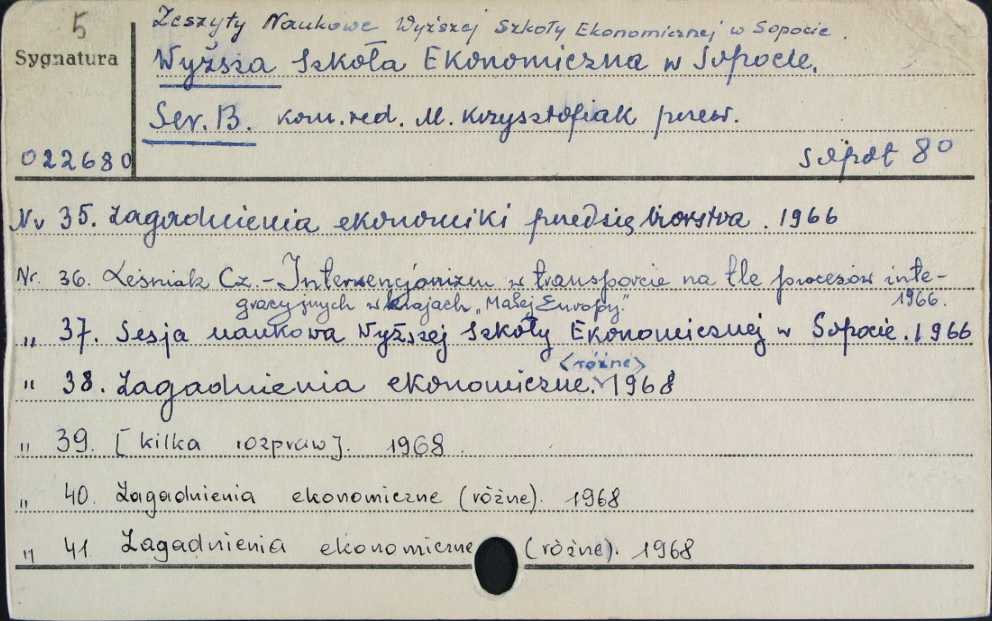 5
Zeszyty Naukowe Wyższej Szkoły Ekonomicznej w Sopocie.
Sygnatura
Wyższa Szkoła Ekonomiczna w Sopocie.
Ser. B. kom. red. M. Krzysztofiak przew.
022680
Sopot 8⁰
Nr 35. Zagadnienia ekonomiki przedsiębiorstwa. 1966
Nr. 36. Leśniak Cz. - Interwencjonizm w transporcie na tle procesów inte-
gracyjnych w krajach „Małej Europy". 1966.
„ 37. Sesja naukowa Wyższej Szkoły Ekonomicznej w Sopocie. 1966
<różne>
„ 38. Zagadnienia ekonomiczne. 1968
„ 39. [kilka rozpraw]. 1968.
„ 40. Zagadnienia ekonomiczne (różne). 1968
„ 41 Zagadnienia ekonomiczne (różne). 1968